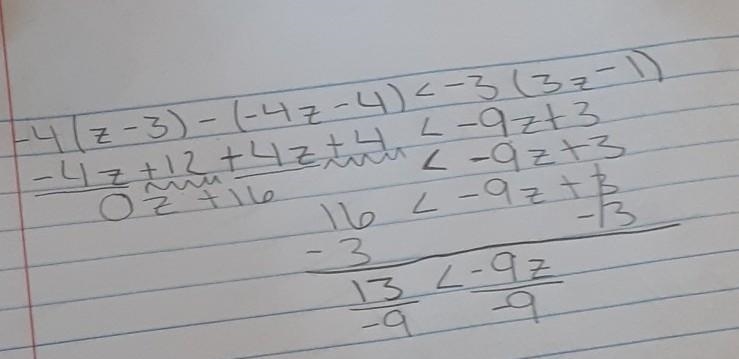 -4(z-3)-(-4z-4)<-3(3z-1)
-4z+12+4z+4 < -9z+3
0z+16 < -9z+3
16 < -9z+3
-3 -3
13 < -9z
-9 -9